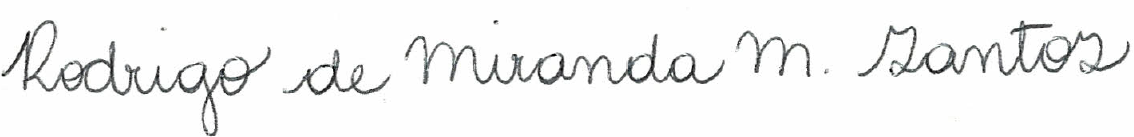 Rodrigo de Miranda M. Santos